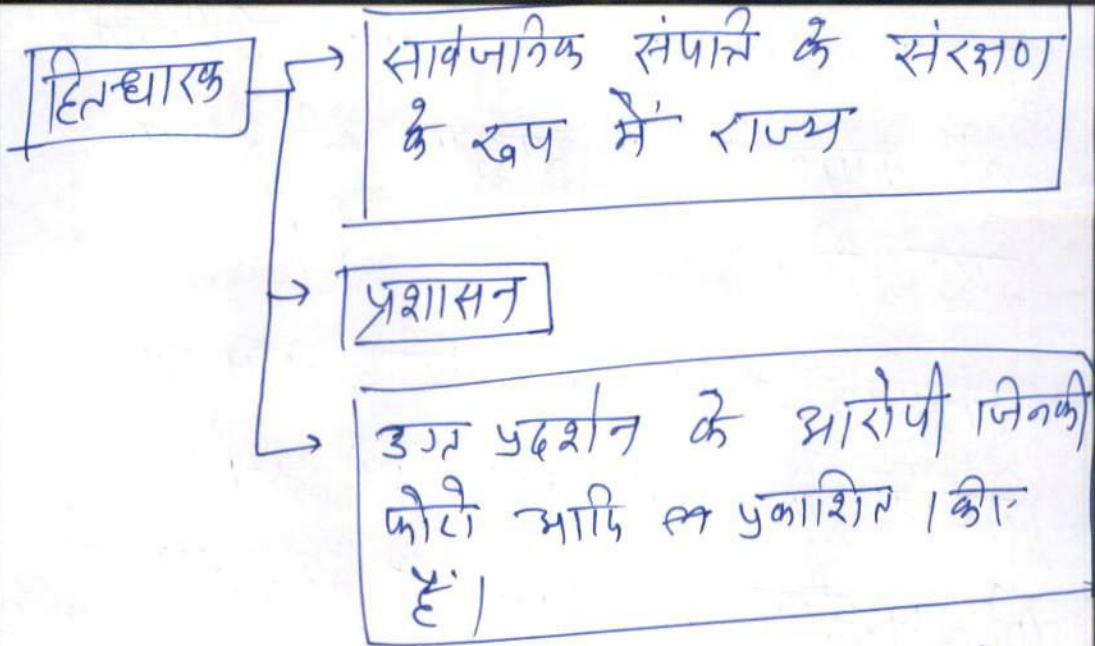 हितधारक
सार्वजनिक संपत्ति के संरक्षण
के रूप में राज्य
प्रशासन
उग्र प्रदर्शन के आरोपी जिनकी
फोटो आदि प्रकाशित की
हैं।